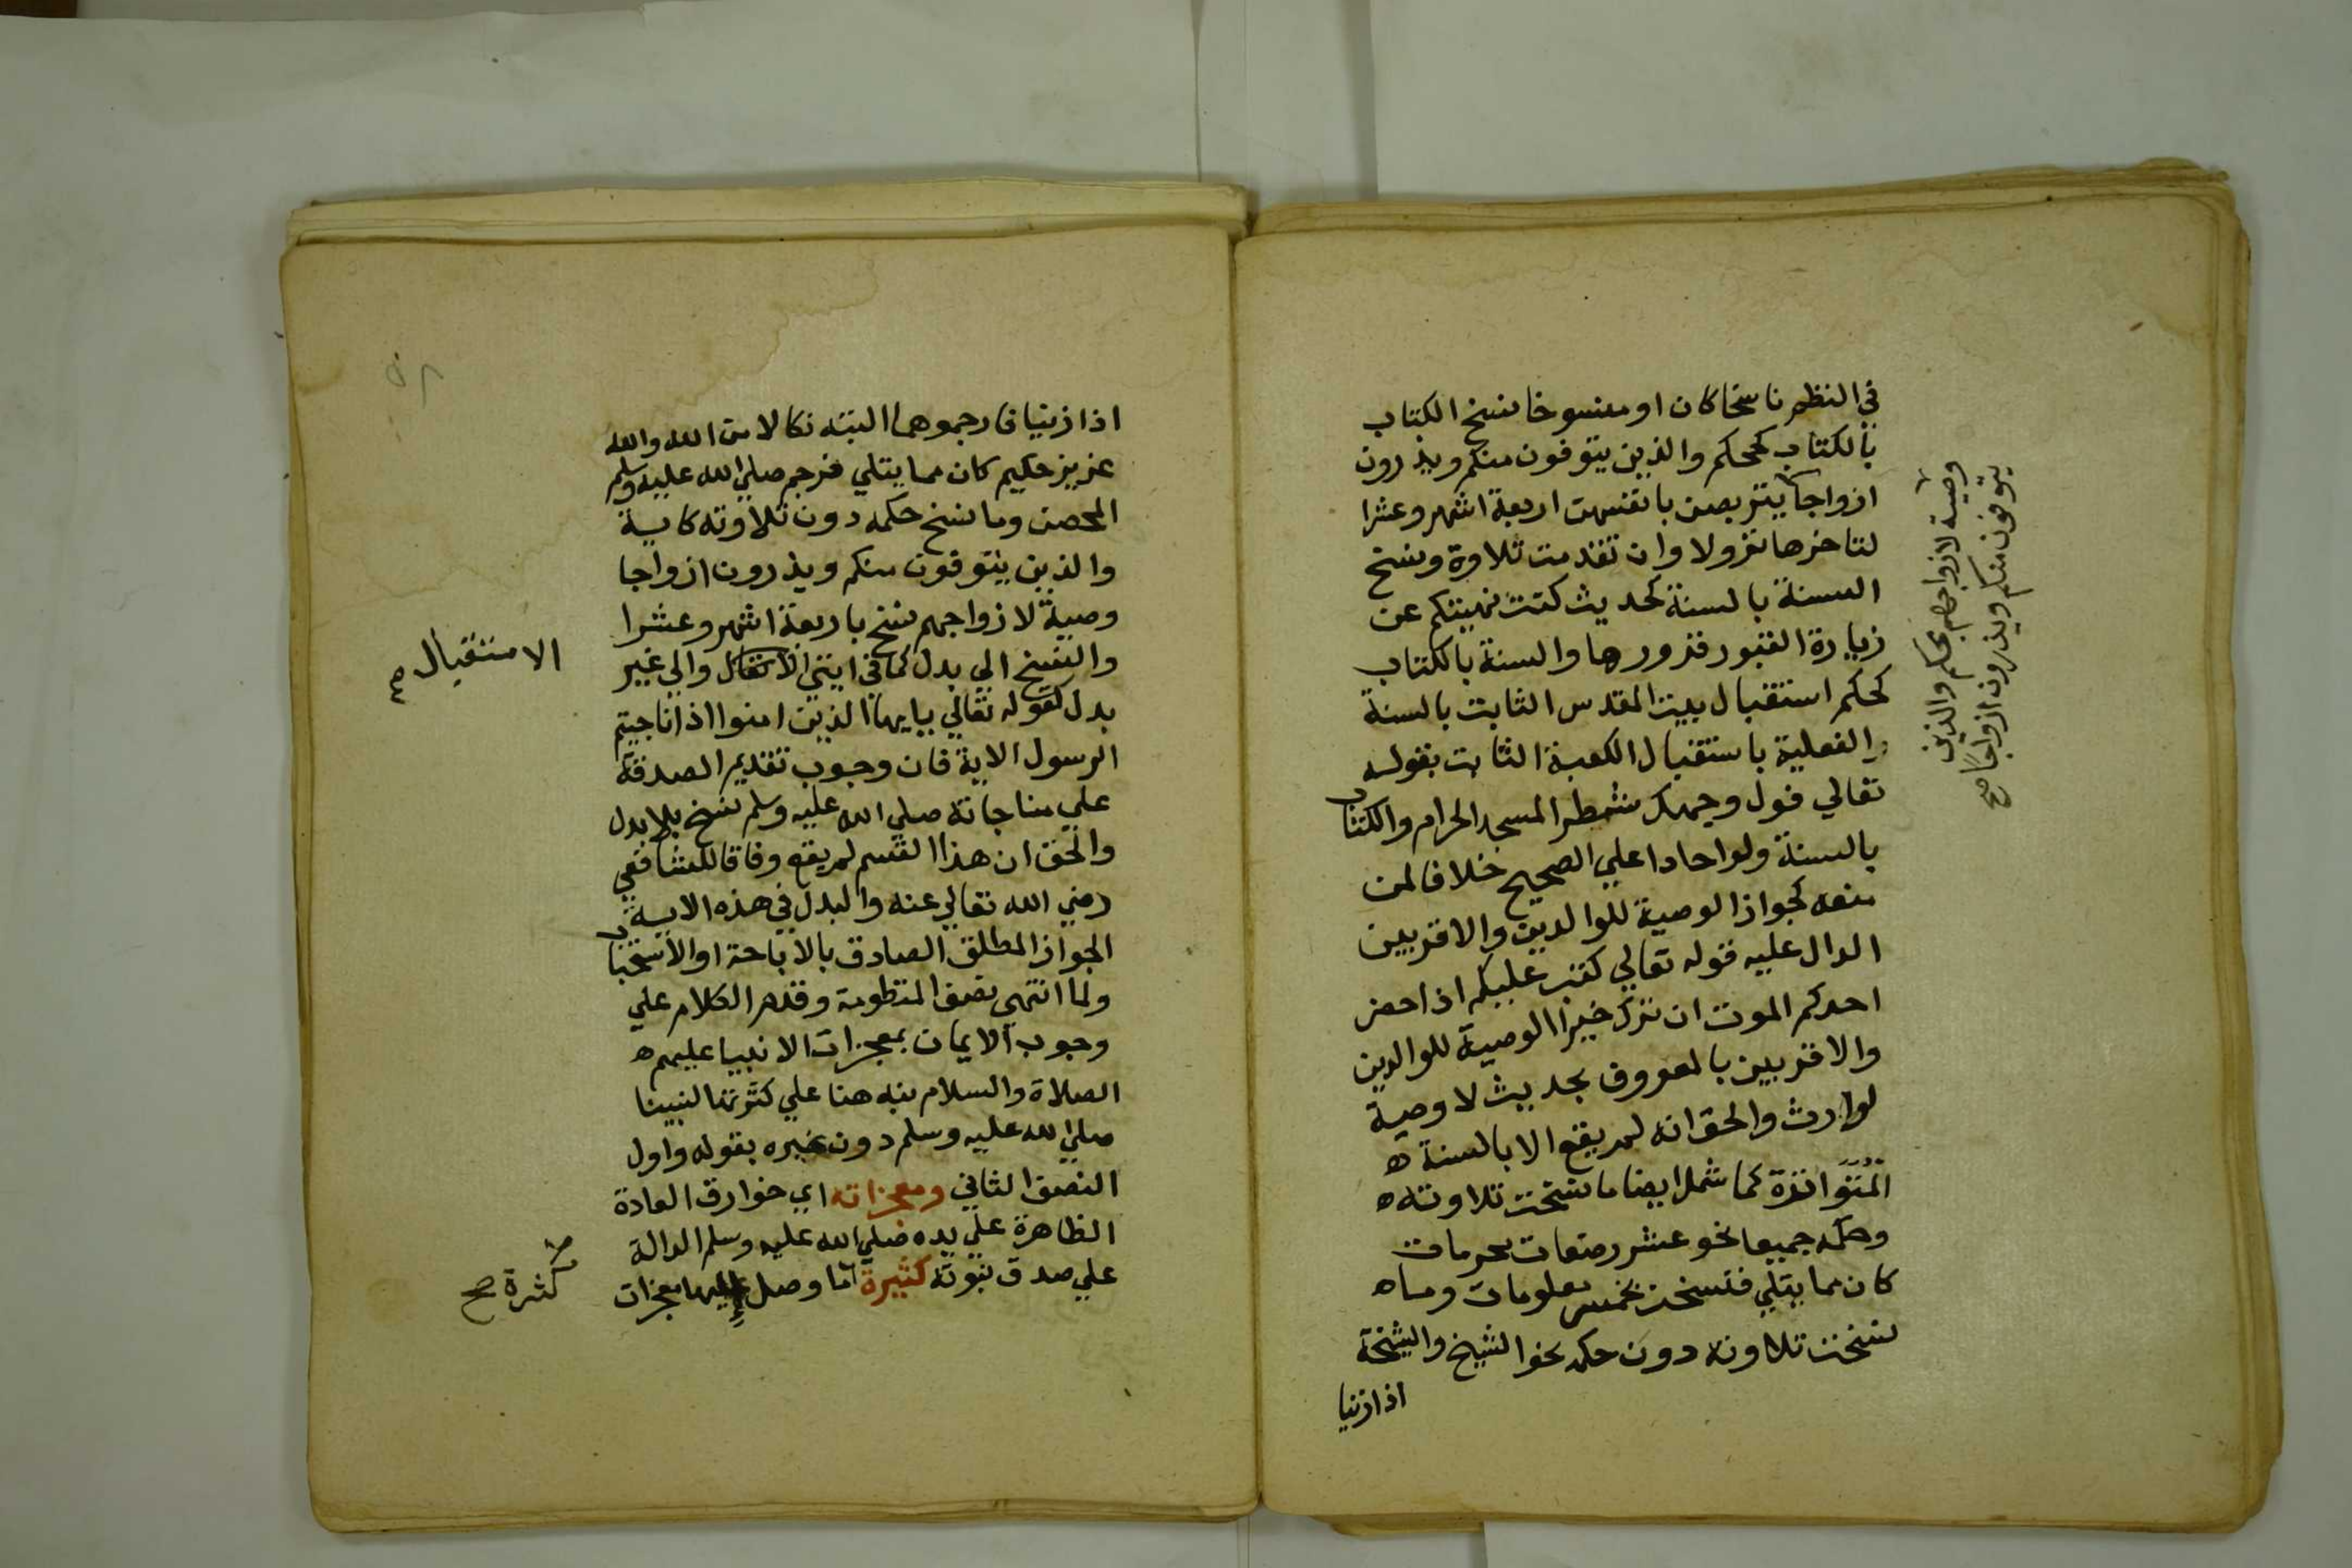 في النظم ناسخا كان او منسوخا نسخ الكتاب
بالكتاب كحكم والذين يتوفون منكم ويذرون
ازواجا يتربصن بانفسهن اربعة اشهر وعشرا
لتاخرها نزولا وان تقدمت تلاوة ونسخ
السنة بالسنة كحديث كنت نهيتكم عن
زيارة القبور فزوروها والسنة بالكتاب
كحكم استقبال بيت المقدس الثابت بالسنة
الفعلية باستقبال الكعبة الثابت بقوله
تعالي فول وجهك شطر المسجد الحرام والكتاب
بالسنة ولو احادا علي الصحيح خلافا لمن
منعه كجواز الوصية للوالدين والاقربين
الدال عليه قوله تعالي كتب عليكم اذا حضر
احدكم الموت ان ترك خيرا الوصية للوالدين
والاقربين بالمعروف بحديث لا وصية
لوارث والحق انه لم يقع الا بالسنة ه
المتواترة كما شمل ايضا ما نسخت تلاوته ه
وحكمه جميعا نحو عشر رضعات محرمات
كان مما يتلي فنسخت بخمس معلومات وما ه
نسخت تلاوته دون حكمه نحو الشيخ والشيخة
اذا زنيا
وصية لازواجهم بحكم والذين
يتوفون منكم ويذرون ازواجا صح
اذا زنيا فارجموهما البته نكالا من الله والله
عزيز حكيم كان مما يتلي فرجم صلي الله عليه وسلم
المحصن وما نسخ حكمه دون تلاوته كاية
والذين يتوفون منكم ويذرون ازواجا
وصية لازواجهم نسخ باربعة اشهر وعشرا
والنسخ الي بدل كما في ايتي الانتقال والي غير
بدل كقوله تعالي يايها الذين امنوا اذا ناجيتم
الرسول الاية فان وجوب تقديم الصدقة
علي مناجاته صلي الله عليه وسلم نسخ بلا بدل
والحق ان هذا القسم لم يقع وفاقا للشافعي
رضي الله تعالي عنه والبدل في هذه الاية
الجواز المطلق الصادق بالاباحة او الاستحباب
ولما انتهي نصف المنظومة وقدم الكلام علي
وجوب الايمان بمعجزات الانبيا عليهم ه
الصلاة والسلام نبه هنا علي كثرتها لنبينا
صلي الله عليه وسلم دون غيره بقوله واول
النصف الثاني ومعجزاته اي خوارق العادة
الظاهرة علي يده صلي الله عليه وسلم الدالة
علي صدق نبوته كثيرة اما وصل اليها معجزات
الاستقبال صح
كثرة صح